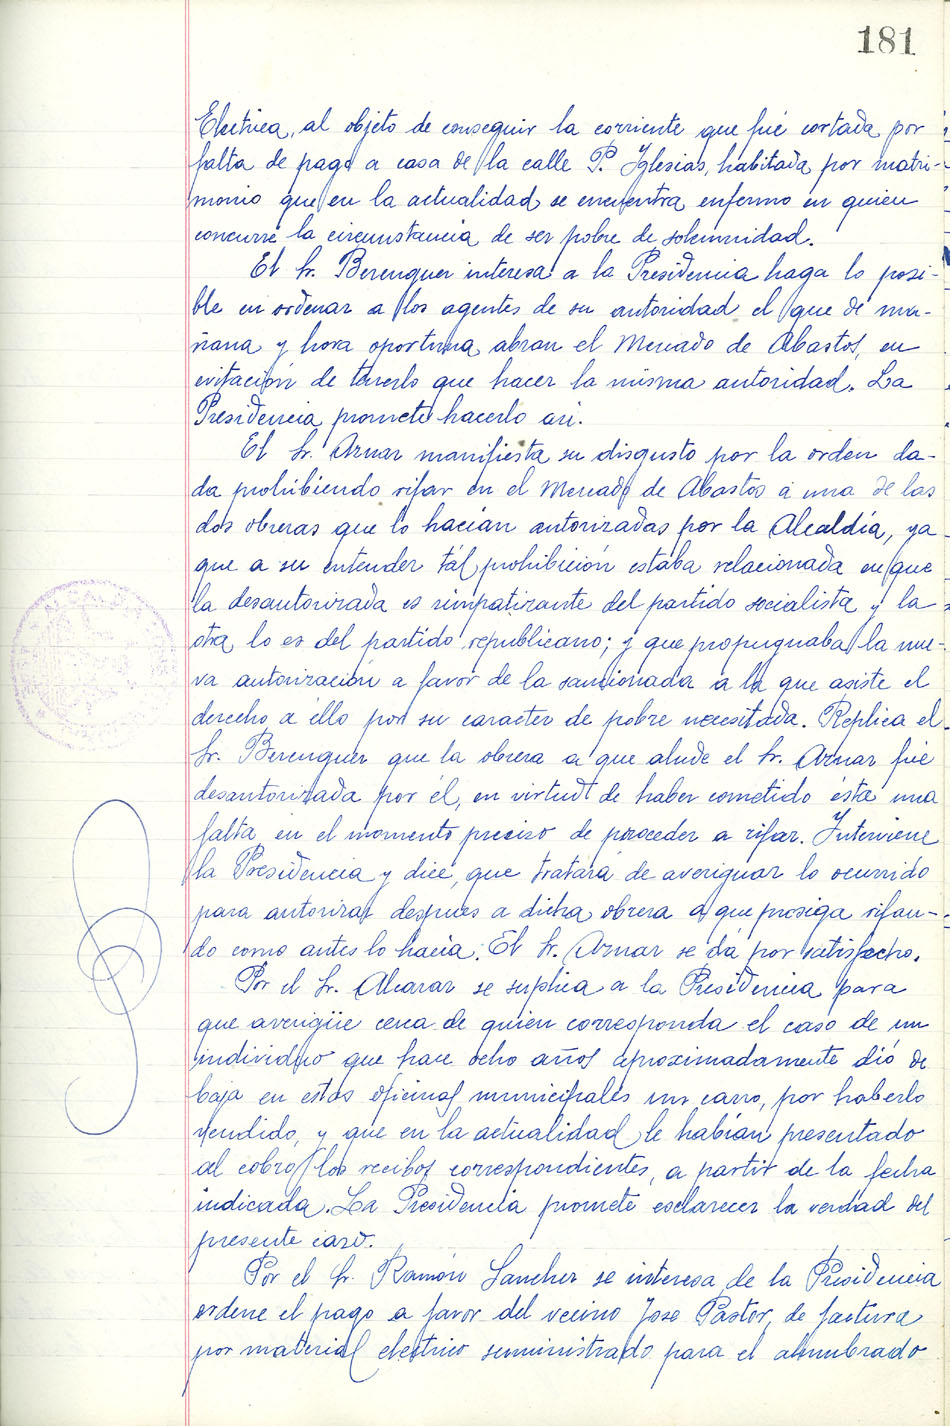 181
Electrica, al objeto de conseguir la corriente que fué cortada por
falta de pago a casa de la calle P. Iglesias, habitada por matri-
monio que en la actualidad se encuentra enfermo en quien
concurre la circunstancia de ser pobre de solemnidad.
El Sr. Berenguer interesa a la Presidencia haga lo posi-
ble en ordenar a los agentes de su autoridad el que de ma-
ñana y hora oportuna abran el Mercado de Abastos, en
evitación de tenerlo que hacer la misma autoridad. La
Presidencia promete hacerlo asi.
El Sr. Aznar manifiesta su disgusto por la orden da-
da prohibiendo rifar en el Mercado de Abastos a una de las
dos obreras que lo hacían autorizadas por la Alcaldía, ya
que a su entender tál prohibición estaba relacionada en que
la desautorizada es simpatizante del partido socialista y la
otra lo es del partido republicano; y que propugnaba la nue-
va autorización a favor de la sancionada a la que asiste el
derecho a éllo por su caracter de pobre necesitada. Replica el
Sr. Berenguer que la obrera a que alude el Sr. Aznar fué
desautorizada por él, en virtud de haber cometido ésta una
falta en el momento preciso de proceder a rifar. Interviene
la Presidencia y dice, que tratará de averiguar lo ocurrido
para autorizar despues a dicha obrera a que prosiga rifan-
do como antes lo hacia. El Sr. Aznar se dá por satisfecho.
Por el Sr. Alcaraz se suplica a la Presidencia para
que averigüe cerca de quien corresponda el caso de un
individuo que hace ocho años aproximadamente dió de
baja en estas oficinas municipales un carro, por haberlo
vendido, y que en la actualidad le habían presentado
al cobro los recibos correspondientes, a partir de la fecha
indicada. La Presidencia promete esclarecer la verdad del
presente caso.
Por el Sr. Ramón Sanchez se interesa de la Presidencia
ordene el pago a favor del vecino José Pastor, de factura
por material electrico suministrado para el alumbrado